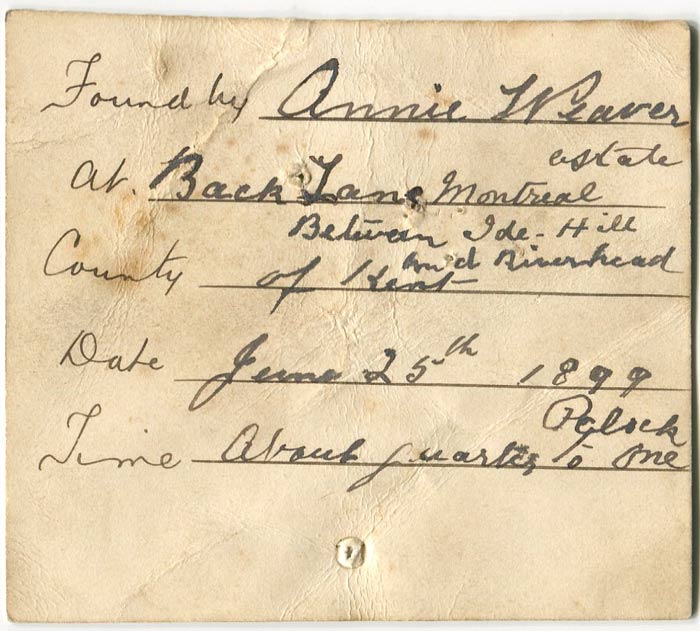 Found by Annie Weaver
estate
At. Back Lane Montreal
Between Ide-Hill
and Riverhead
County of Kent
Date June 25th 1899
Time About quarter to one